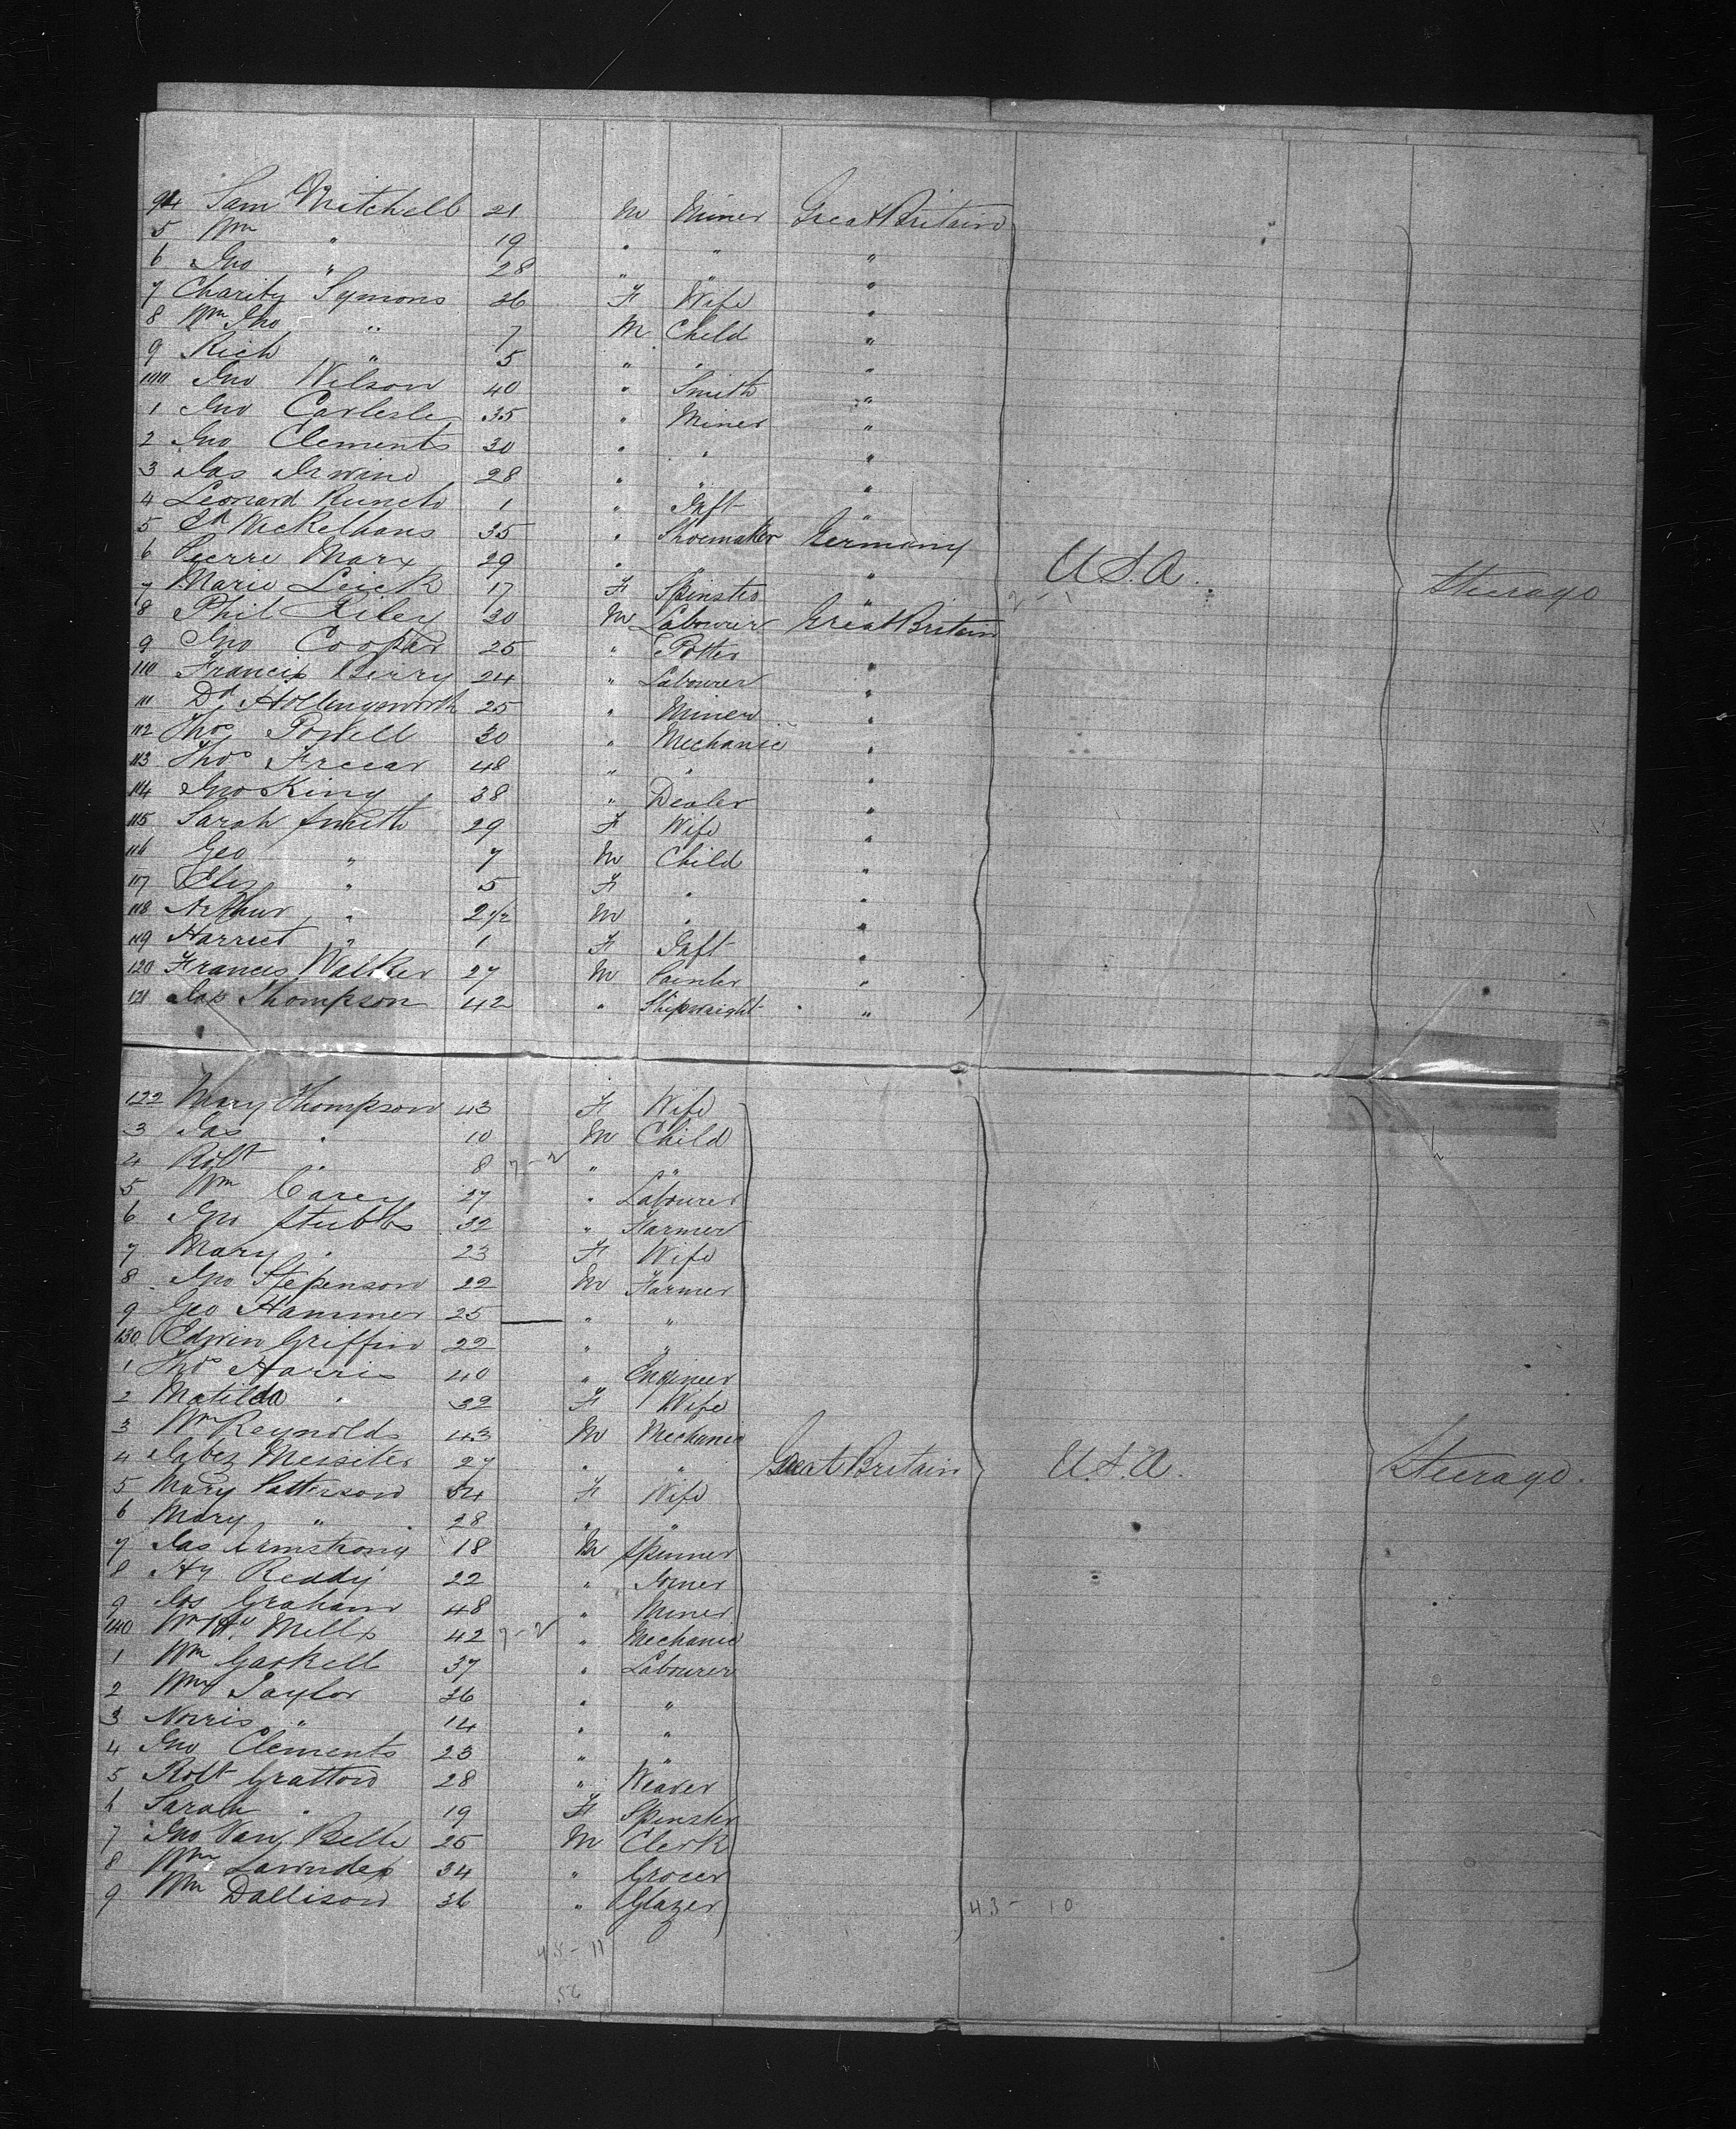 94 Sam Mitchell 21 M Miner Great Britain
5 Wm " 19 " " "
6 Jno " 28 " " "
7 Charity Symons 26 F Wife "
8 Wm Jno " 7 M Child "
9 Rich " 5 " " "
100 Jno Wilson 40 " Smith "
1 Jno Carlesle 35 " Miner "
2 Jno Clements 30 " " "
3 Jas Irwine 28 " " "
4 Leonard 1 " Inft "
5 Ed 35 " Shoemaker Germany
6 Pierre Marx 29 " " " U.S.A. Steerage
7 Marie Leick 17 F Spinster "
8 Phil Riley 30 M Labourer Great Britain
9 Jno Cooper 25 " Potter "
110 Francis Berry 24 " Labourer "
111 Dd Hollingsworth 25 " Miner "
112 Thos Powell 30 " Mechanic "
113 Thos Freear 48 " " "
114 Jno King 38 " Dealer "
115 Sarah Smith 29 F Wife "
116 Geo " 7 M Child "
117 Eliz " 5 F " "
118 Arthur " 2 1/2 M " "
119 Harriet " 1 F Inft "
120 Francis Walker 27 M Painter "
121 Jas Thompson 42 " Shipwright "
122 Mary Thompson 43 F Wife
3 Jas " 10 M Child
4 Robt " 8 " "
5 Wm Carey 27 " Labourer
6 Jno Stubbs 32 " Farmer
7 Mary " 23 F Wife
8 Jno Stepenson 22 M Farmer
9 Geo Hammer 25 " "
130 Edwin Griffin 22 " "
1 Thos Harris 40 " Engineer
2 Matilda " 32 F Wife
3 Wm Reynolds 43 M Mechanic
4 Jabez Messiter 27 " " Great Britain U.S.A. Steerage.
5 Mary Patterson 54 F Wife
6 Mary " 28 " "
7 Jas Armstrong 18 M Spinner
8 Hy Reddy 22 " Joiner
9 Jos Graham 48 " Miner
140 Wm Hy Mills 42 " Mechanic
1 Wm Gaskell 37 " Labourer
2 Wm Taylor 36 " "
3 Norris " 14 " "
4 Jno Clements 23 " "
5 Robt Gratton 28 " Weaver
6 Sarah " 19 F Spinster
7 Jno Van Belle 25 M Clerk
8 Wm Lawndes 34 " Grocer
9 Wm Dallison 36 " Glazer
43 - 10
48 - 11
56